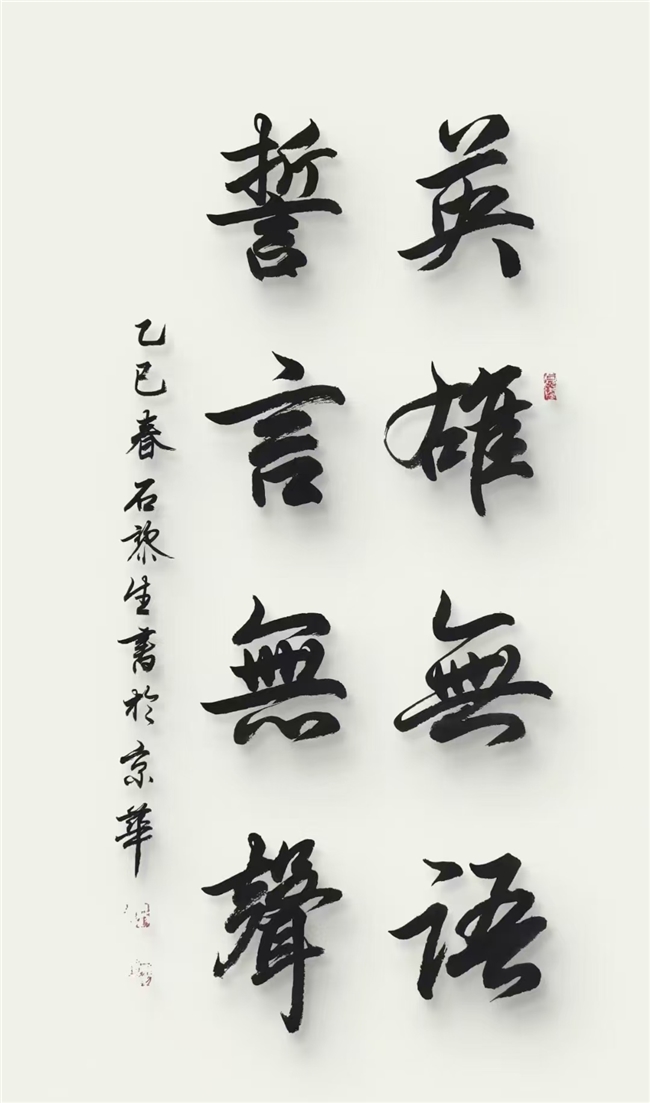 英雄無語
誓言無聲
乙巳春石黎生書於京華